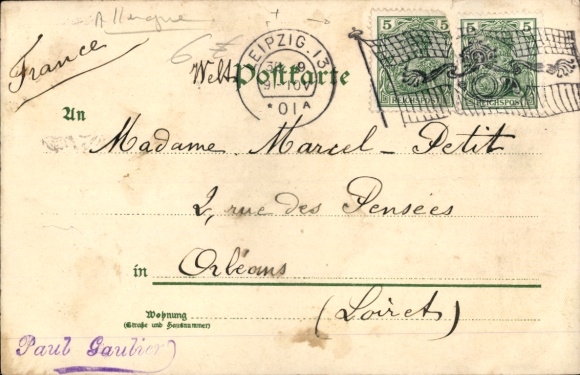 Allemagne
France
LEIPZIG.13
30 9
9-10V
*01A
5 5
REICHSPOST
5 5
REICHSPOST
Weltpostkarte
An
Madame Marcel-Petit
2, rue des Pensées
in Orléans
(Loiret)
Wohnung
(Straße und Hausnummer)
Paul Gaubier